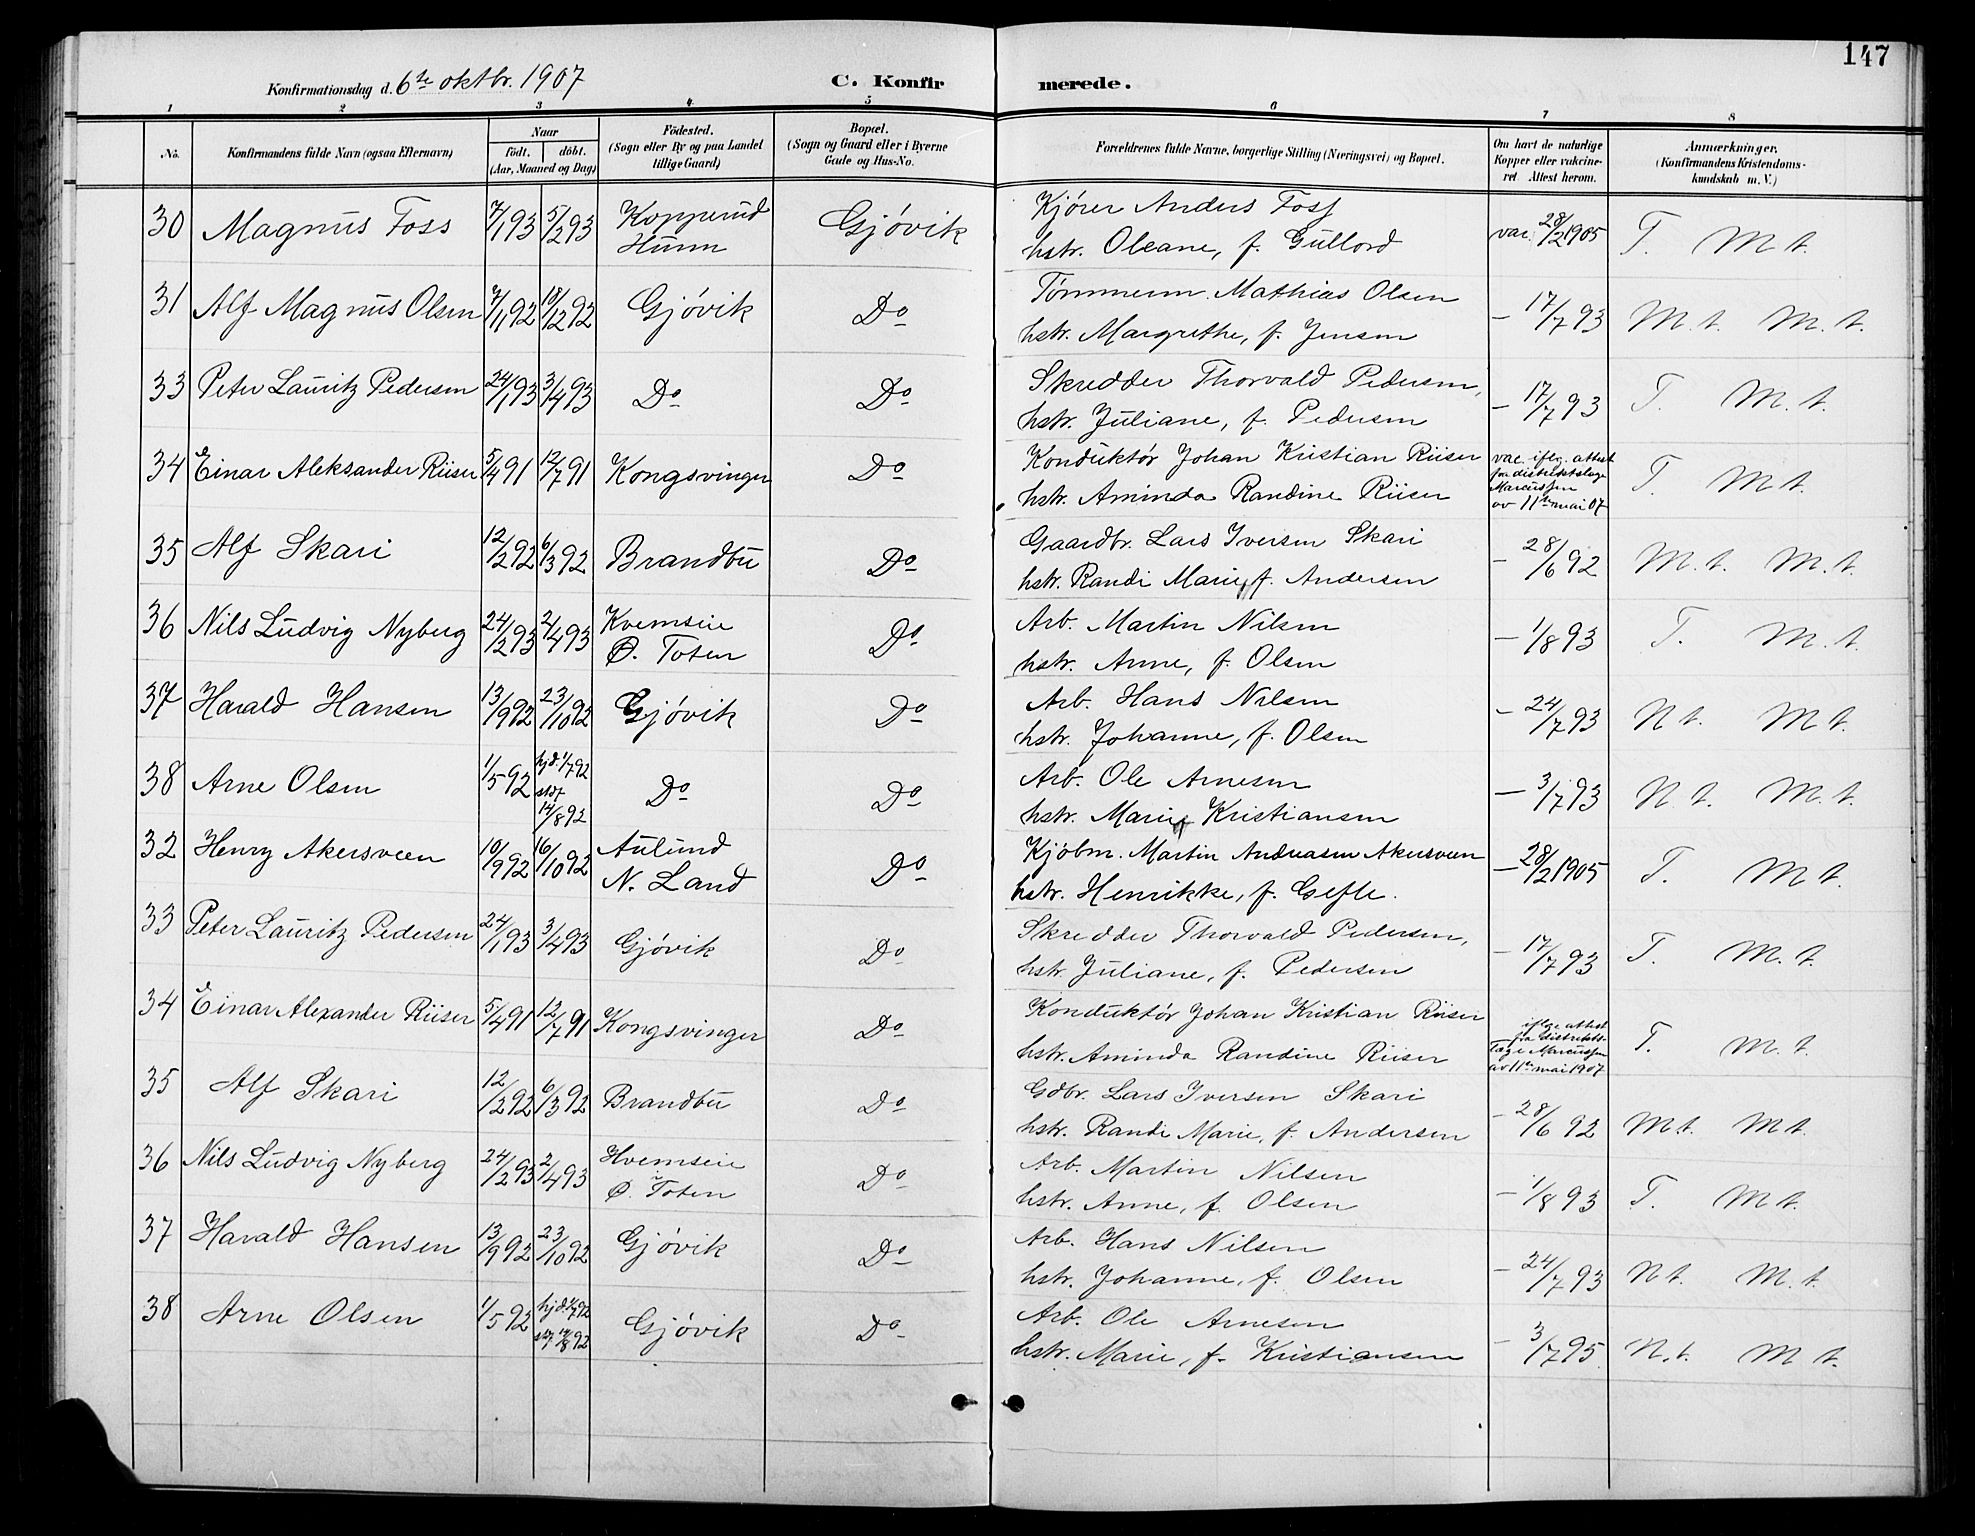 147
Konfirmationsdag d. 6te oktbr. 1907
C. Konfirmerede.
1 2 3 4 5 6 7 8
No.
Konfirmandens fulde Navn (ogsaa Efternavn)
Naar
födt. döbt.
(Aar, Maaned og Dag)
Födested.
(Sogn eller By og paa Landet
tillige Gaard)
Bopæl.
(Sogn og Gaard eller i Byerne
Gade og Hus-No.
Forældrenes fulde Navne, borgerlige Stilling (Næringsvei) og Bopæl.
Om havt de naturlige
Kopper eller vakcine-
ret. Attest herom.
Anmærkninger,
(Konfirmandens Kristendoms-
kundskab m. V.)
30 Magnus Foss 7/1 93 5/2 93 Kopperud Hunn Gjóvik Kjórer Anders Foss var. 28/2 1905 T. M. t.
hstr. Oleane, f. Gullord
31 Alf Magnus Olsen 7/1 92 18/12 92 Gjóvik Do Tómmerm. Mathias Olsen — 17/7 93 M. t. M. t.
hstr. Margrethe, f. Jensen
33 Peter Lauritz Pedersen 24/1 93 3/4 93 Do Do Skredder Thorvald Pedersen, — 17/7 93 T. M. t.
hstr. Juliane, f. Pedersen
34 Einar Aleksander Riiser 5/4 91 12/7 91 Kongsvinger Do Konduktór Johan Kristian Riiser vac. iflg. attest
fra distriktslæge
Marcussen
av 11te mai 07 T. M. t.
hstr. Aminda Randine Riiser
35 Alf Skari 12/2 92 6/3 92 Brandbu Do Gaardbr. Lars Iversen Skari — 28/6 92 M. t. M. t.
hstr. Randi Marie, f. Andersen
36 Nils Ludvig Nyberg 24/2 93 2/4 93 Kvemseie Ø. Toten Do Arb. Martin Nilsen — 1/8 93 T. M. t.
hstr. Anne, f. Olsen
37 Harald Hansen 13/9 92 23/10 92 Gjóvik Do Arb. Hans Nilsen — 24/7 93 N t. M t.
hstr. Johanne, f. Olsen
38 Arne Olsen 1/5 92 hjd. 1/7 92 stdf 14/8 92 Do Do Arb. Ole Arnesen — 3/7 93 N. t. M. t.
hstr. Marie, f. Kristiansen
32 Henry Akersveen 10/9 92 16/10 92 Aulund N. Land Do Kjóbm. Martin Andreasen Akersveen — 28/2 1905 T. M t.
hstr. Henrikke, f. Gefle.
33 Peter Lauritz Pedersen 24/1 93 3/4 93 Gjóvik Do Skredder Thorvald Pedersen, — 17/7 93 T. M. t.
hstr. Juliane, f. Pedersen
34 Einar Alexander Riiser 5/4 91 12/7 91 Kongsvinger Do Konduktór Johan Kristian Riiser iflge attest
fra distrikts-
læge Marcussen
av 11te mai 1907 T. M. t.
hstr. Aminda Randine Riiser
35 Alf Skari 12/2 92 6/3 92 Brandbu Do Gdbr. Lars Iversen Skari — 28/6 92 M t. M t.
hstr. Randi Marie, f. Andersen
36 Nils Ludvig Nyberg 24/2 93 2/4 93 Hvemseie Ø. Toten Do Arb. Martin Nilsen — 1/8 93 T. M t.
hstr. Anne, f. Olsen
37 Harald Hansen 13/9 92 23/10 92 Gjóvik Do Arb. Hans Nilsen — 24/7 93 N t. M. t.
hstr. Johanne, f. Olsen
38 Arne Olsen 1/5 92 hjd. 1/7 92 14/8 92 Gjóvik Do Arb. Ole Arnesen — 3/7 95 N. t. M t.
hstr. Marie, f. Kristiansen